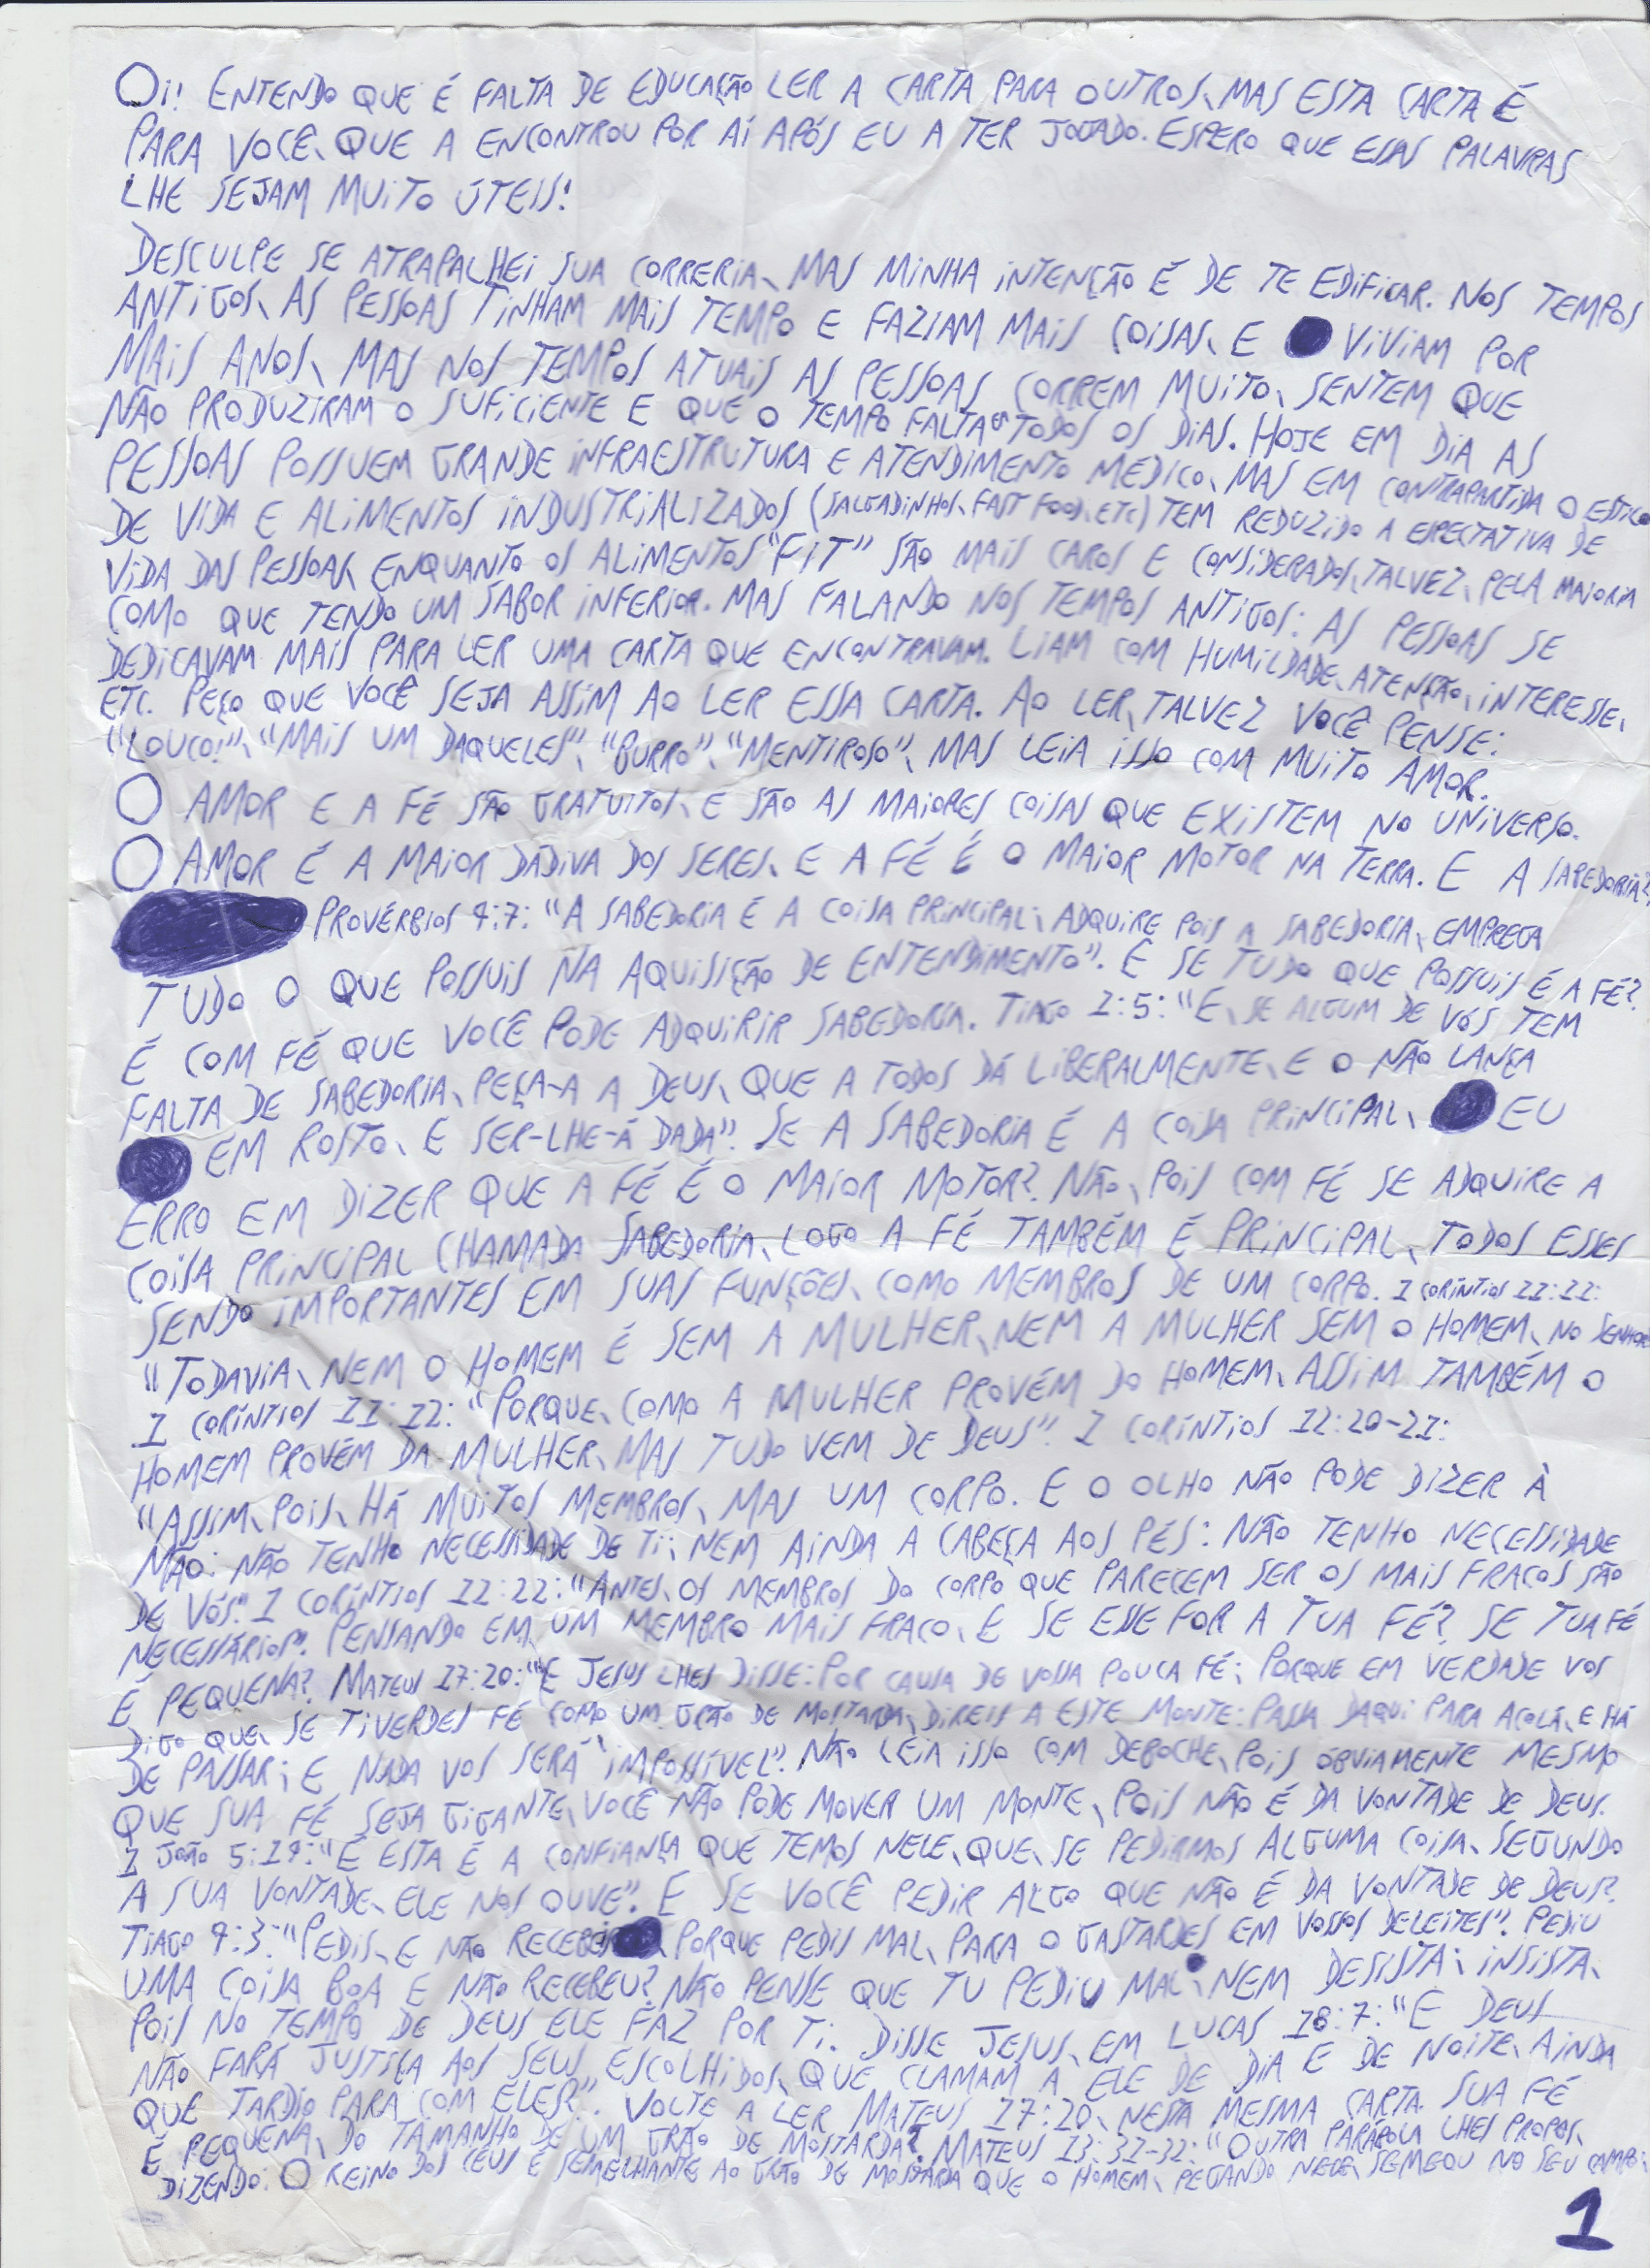 Oi! ENTENDO QUE É FALTA DE EDUCAÇÃO LER A CARTA PARA OUTROS, MAS ESTA CARTA É
PARA VOCÊ, QUE A ENCONTROU POR AÍ APÓS EU A TER JOGADO. ESPERO QUE ESSAS PALAVRAS
LHE SEJAM MUITO ÚTEIS!
DESCULPE SE ATRAPALHEI SUA CORRERIA, MAS MINHA INTENÇÃO É DE TE EDIFICAR. NOS TEMPOS
ANTIGOS, AS PESSOAS TINHAM MAIS TEMPO E FAZIAM MAIS COISAS, E VIVIAM POR
MAIS ANOS, MAS NOS TEMPOS ATUAIS AS PESSOAS CORREM MUITO, SENTEM QUE
NÃO PRODUZIRAM O SUFICIENTE E QUE O TEMPO FALTA EM TODOS OS DIAS. HOJE EM DIA AS
PESSOAS POSSUEM GRANDE INFRAESTRUTURA E ATENDIMENTO MÉDICO, MAS EM CONTRAPARTIDA O ESTILO
DE VIDA E ALIMENTOS INDUSTRIALIZADOS (SALGADINHOS, FAST FOOD, ETC) TEM REDUZIDO A EPECTATIVA DE
VIDA DAS PESSOAS, ENQUANTO OS ALIMENTOS "FIT" SÃO MAIS CAROS E CONSIDERADOS, TALVEZ, PELA MAIORIA
COMO QUE TENDO UM SABOR INFERIOR. MAS FALANDO NOS TEMPOS ANTIGOS: AS PESSOAS SE
DEDICAVAM MAIS PARA LER UMA CARTA QUE ENCONTRAVAM. LIAM COM HUMILDADE, ATENSÃO, INTERESSE,
ETC. PEÇO QUE VOCÊ SEJA ASSIM AO LER ESSA CARTA. AO LER, TALVEZ VOCÊ PENSE:
"LOUCO!", "MAIS UM DAQUELES", "BURRO", "MENTIROSO", MAS LEIA ISSO COM MUITO AMOR.
O AMOR E A FÉ SÃO GRATUITOS, E SÃO AS MAIORES COISAS QUE EXISTEM NO UNIVERSO.
O AMOR É A MAIOR DÁDIVA DOS SERES, E A FÉ É O MAIOR MOTOR NA TERRA. E A SABEDORIA?
PROVÉRBIOS 4:7: "A SABEDORIA É A COISA PRINCIPAL; ADQUIRE POIS A SABEDORIA, EMPREGA
TUDO O QUE POSSUIS NA AQUISIÇÃO DE ENTENDIMENTO". E SE TUDO QUE POSSUIS É A FÉ?
É COM FÉ QUE VOCÊ PODE ADQUIRIR SABEDORIA. TIAGO 1:5: "E, SE ALGUM DE VÓS TEM
FALTA DE SABEDORIA, PEÇA-A A DEUS, QUE A TODOS DÁ LIBERALMENTE, E O NÃO LANÇA
EM ROSTO, E SER-LHE-Á DADA". SE A SABEDORIA É A COISA PRINCIPAL, EU
ERRO EM DIZER QUE A FÉ É O MAIOR MOTOR? NÃO, POIS COM FÉ SE ADQUIRE A
COISA PRINCIPAL CHAMADA SABEDORIA, LOGO A FÉ TAMBÉM É PRINCIPAL, TODOS ESSES
SENDO IMPORTANTES EM SUAS FUNÇÕES, COMO MEMBROS DE UM CORPO. 1 CORÍNTIOS 11:11:
"TODAVIA, NEM O HOMEM É SEM A MULHER, NEM A MULHER SEM O HOMEM, NO SENHOR
1 CORÍNTIOS 11:12: "PORQUE, COMO A MULHER PROVÉM DO HOMEM, ASSIM TAMBÉM O
HOMEM PROVÉM DA MULHER, MAS TUDO VEM DE DEUS". 1 CORÍNTIOS 12:20-21:
"ASSIM, POIS, HÁ MUITOS MEMBROS, MAS UM CORPO. E O OLHO NÃO PODE DIZER À
MÃO: NÃO TENHO NECESSIDADE DE TI; NEM AINDA A CABEÇA AOS PÉS: NÃO TENHO NECESSIDADE
DE VÓS". 1 CORÍNTIOS 12:22: "ANTES, OS MEMBROS DO CORPO QUE PARECEM SER OS MAIS FRACOS SÃO
NECESSÁRIOS". PENSANDO EM UM MEMBRO MAIS FRACO, E SE ESSE FOR A TUA FÉ? SE TUA FÉ
É PEQUENA? MATEUS 17:20: "E JESUS LHES DISSE: POR CAUSA DE VOSSA POUCA FÉ; PORQUE EM VERDADE VOS
DIGO QUE, SE TIVERDES FÉ COMO UM GRÃO DE MOSTARDA, DIREIS A ESTE MONTE: PASSA DAQUI PARA ACOLÁ, E HÁ
DE PASSAR; E NADA VOS SERÁ IMPOSSÍVEL". NÃO LEIA ISSO COM DEBOCHE, POIS OBVIAMENTE MESMO
QUE SUA FÉ SEJA GIGANTE, VOCÊ NÃO PODE MOVER UM MONTE, POIS NÃO É DA VONTADE DE DEUS.
1 JOÃO 5:14: "E ESTA É A CONFIANÇA QUE TEMOS NELE, QUE, SE PEDIRMOS ALGUMA COISA, SEGUNDO
A SUA VONTADE, ELE NOS OUVE". E SE VOCÊ PEDIR ALGO QUE NÃO É DA VONTADE DE DEUS?
TIAGO 4:3: "PEDIS, E NÃO RECEBEIS, PORQUE PEDIS MAL, PARA O GASTARDES EM VOSSOS DELEITES". PEDIU
UMA COISA BOA E NÃO RECEBEU? NÃO PENSE QUE TU PEDIU MAL, NEM DESISTA; INSISTA,
POIS NO TEMPO DE DEUS ELE FAZ POR TI. DISSE JESUS, EM LUCAS 18:7: "E DEUS
NÃO FARÁ JUSTIÇA AOS SEUS ESCOLHIDOS, QUE CLAMAM A ELE DE DIA E DE NOITE, AINDA
QUE TARDIO PARA COM ELES?". VOLTE A LER MATEUS 17:20, NESTA MESMA CARTA. SUA FÉ
É PEQUENA, DO TAMANHO DE UM GRÃO DE MOSTARDA? MATEUS 13:31-32: "OUTRA PARÁBOLA LHES PROPOS,
DIZENDO: O REINO DOS CÉUS É SEMELHANTE AO GRÃO DE MOSTARDA QUE O HOMEM, PEGANDO NELE, SEMEOU NO SEU CAMPO;
1